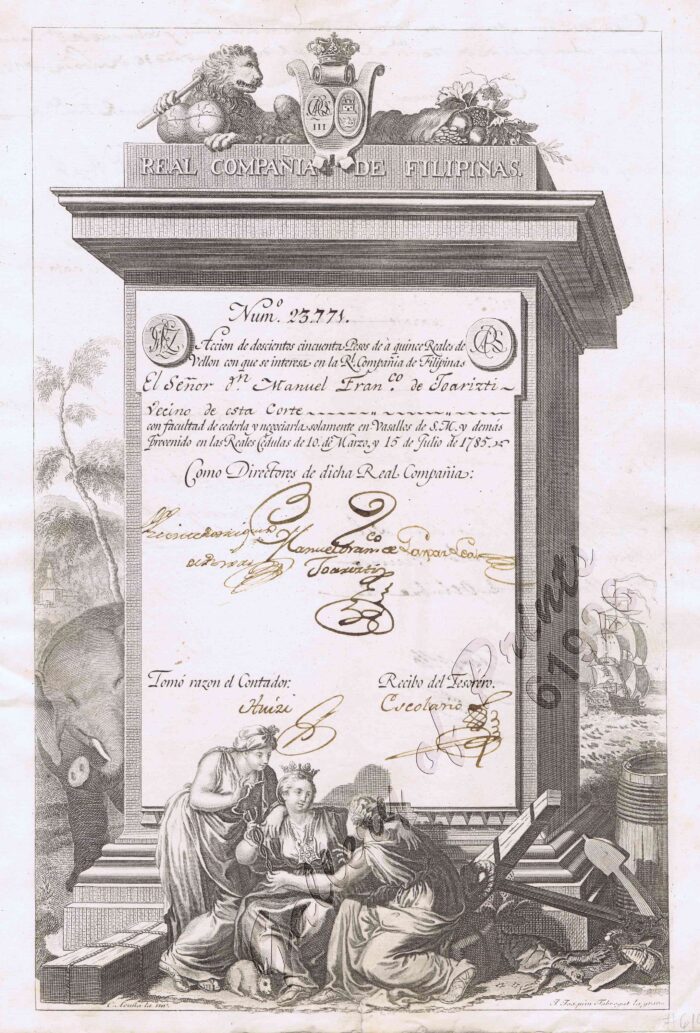 III
REAL COMPAÑIA DE FILIPINAS.
Num.º 23.771.
Accion de doscientos cincuenta Pesos de à quince Reales de
Vellon con que se interesa en la Rl. Compañia de Filipinas
El Señor Dn. Manuel Fran.co de Joarizti
Vecino de esta Corte
con facultad de cederla y negociarla solamente en Vasallos de S.M. y demás
prevenido en las Reales Cédulas de 10. de Marzo, y 15 de Julio de 1785.
Como Directores de dicha Real Compañia:
Manuel Fran.co
Joarizti
Gaspar Leal
Tomó razon el Contador.
Recibo del Tesorero.
Escolario
Prints
619
J. Joaquin Fabregat la grabó